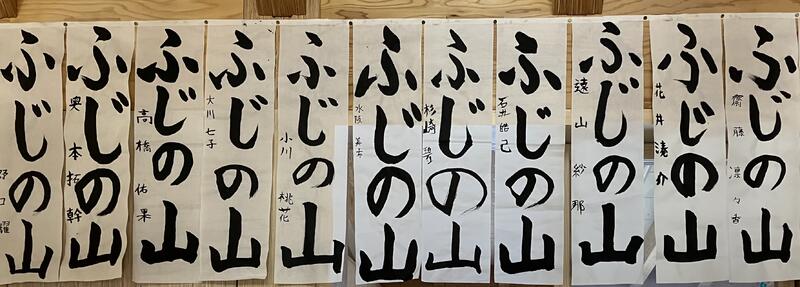 ふじの山
齋藤 凛々香
ふじの山
花井湊介
ふじの山
遠山紗那
ふじの山
石井皓己
ふじの山
杉崎
ふじの山
水阪
ふじの山
小川桃花
ふじの山
大川七子
ふじの山
高橋佑果
ふじの山
奥本拓幹
ふじの山
野口耀